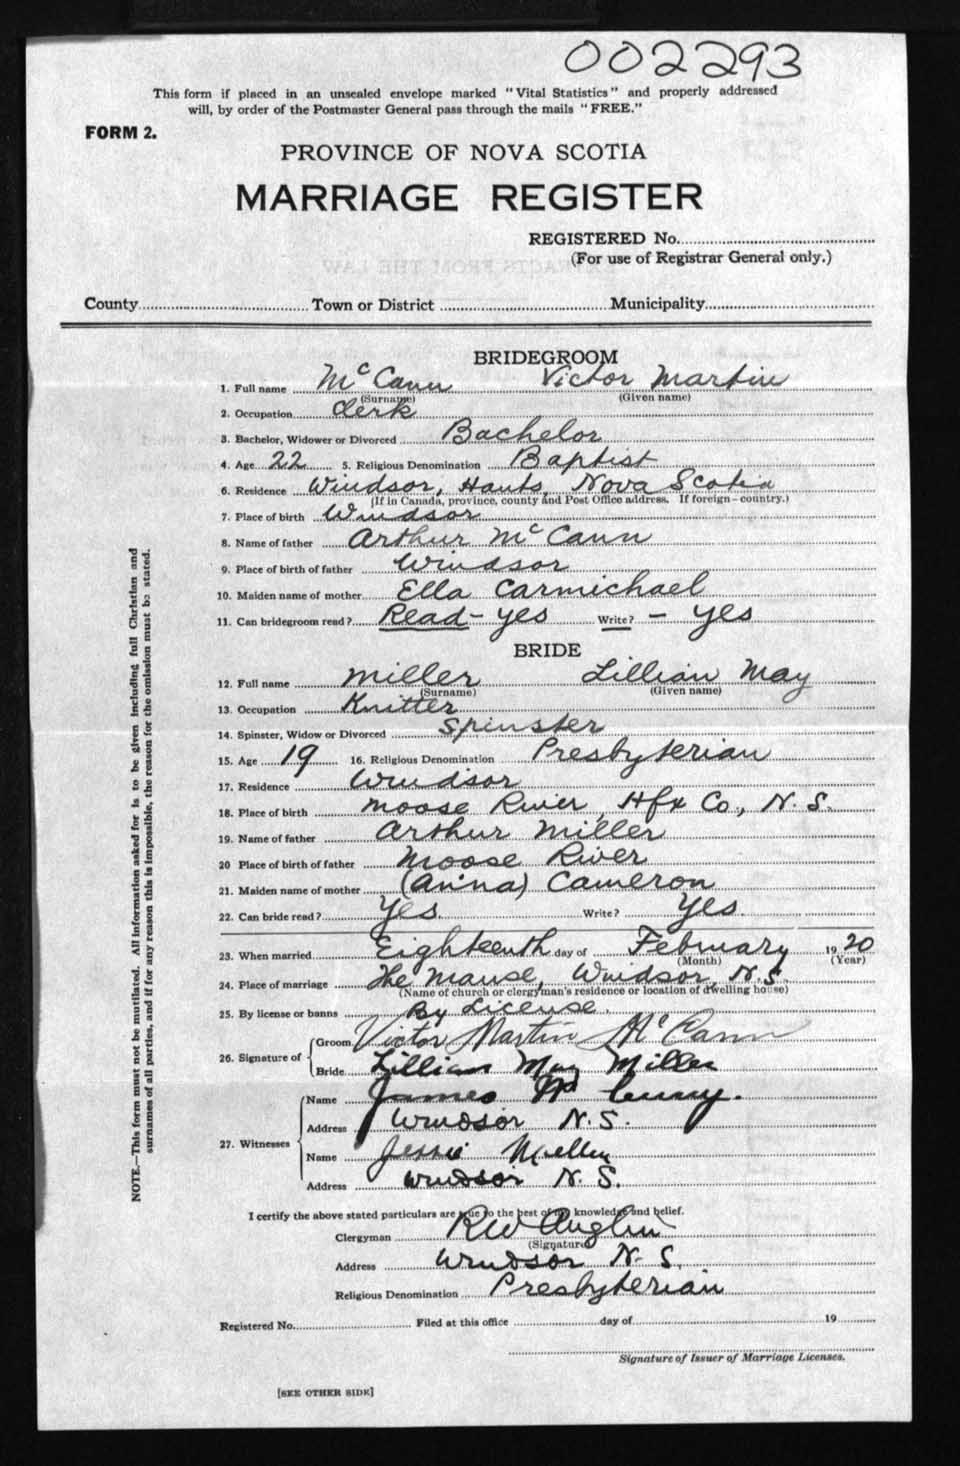 002293
This form if placed in an unsealed envelope marked "Vital Statistics" and properly addressed
will, by order of the Postmaster General pass through the mails "FREE."
FORM 2.
PROVINCE OF NOVA SCOTIA
MARRIAGE REGISTER
REGISTERED No.
(For use of Registrar General only.)
County Town or District Municipality
BRIDEGROOM
1. Full name McCann Victor Martin
(Surname) (Given name)
2. Occupation Clerk
3. Bachelor, Widower or Divorced Bachelor
4. Age 22 5. Religious Denomination Baptist
6. Residence Windsor, Hants, Nova Scotia
(If in Canada, province, county and Post Office address. If foreign—country.)
7. Place of birth Windsor
8. Name of father Arthur McCann
9. Place of birth of father Windsor
10. Maiden name of mother Ella Carmichael
11. Can bridegroom read? Read - yes Write? - yes
BRIDE
12. Full name Miller Lillian May
(Surname) (Given name)
13. Occupation Knitter
14. Spinster, Widow or Divorced Spinster
15. Age 19 16. Religious Denomination Presbyterian
17. Residence Windsor
18. Place of birth Moose River, Hfx Co., N.S.
19. Name of father Arthur Miller
20 Place of birth of father Moose River
21. Maiden name of mother (Anina) Cameron
22. Can bride read? Yes. Write? Yes.
23. When married Eighteenth day of February 1920
(Month) (Year)
24. Place of marriage The Manse, Windsor, N.S.
(Name of church or clergyman's residence or location of dwelling house)
25. By license or banns By License.
26. Signature of Groom Victor Martin McCann
Bride Lillian May Miller
27. Witnesses Name James W
Address Windsor N.S.
Name Jessie
Address Windsor N.S.
I certify the above stated particulars are true to the best of my knowledge and belief.
Clergyman RW Anglin
(Signature)
Address Windsor N.S.
Religious Denomination Presbyterian
Registered No. Filed at this office day of 19
Signature of Issuer of Marriage Licenses.
[SEE OTHER SIDE]
NOTE.—This form must not be mutilated. All information asked for is to be given including full Christian and
surnames of all parties, and if for any reason this is impossible, the reason for the omission must be stated.